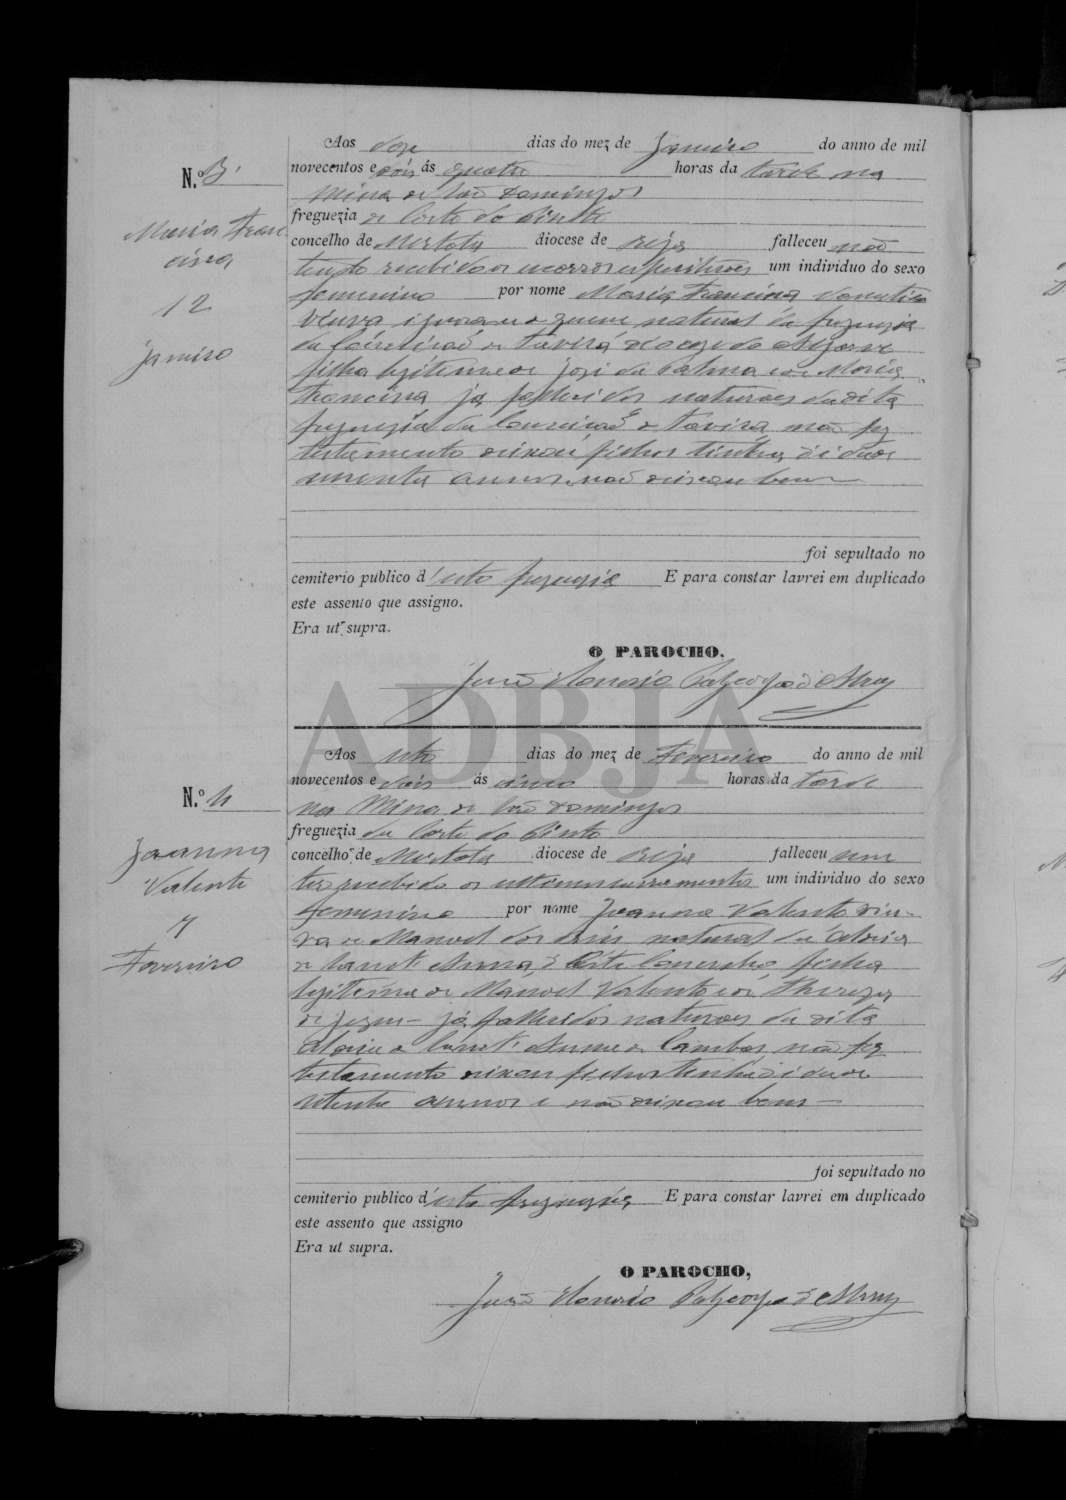 Aos doze dias do mez de Janeiro do anno de mil
N.º 3
novecentos e dois ás quatro horas da tarde na
Mina de São Domingos
Maria Fran
cisca
12
Janeiro
freguezia de Corte do Pinto
concelho de Mertola diocese de Beja falleceu não
tendo recebido os socorros espirituaes um individuo do sexo
femenino por nome Maria Francisca
viuva ignora-se de quem natural da freguezia
da de Tavira do Algarve
filha legitima de José da Palma e de Maria
Francisca já fallecidos naturaes da dita
freguezia da de Tavira não fez
testamento deixou filhos tinha de idade
annos não deixou bens
foi sepultado no
cemiterio publico d'esta freguezia E para constar lavrei em duplicado
este assento que assigno.
Era ut supra.
O PAROCHO,
ADBJA
Aos sete dias do mez de Fevereiro do anno de mil
N.º 4
novecentos e dois ás cinco horas da tarde
na Mina de São Domingos
Joanna
Valente
7
Fevereiro
freguezia da Corte do Pinto
concelho de Mertola diocese de Beja falleceu sem
ter recebido os ultimos sacramentos um individuo do sexo
femenino por nome Joanna Valente viu-
va de Manoel dos Reis natural da aldeia
de Sant'Anna d'este Concelho, filha
legitima de Manoel Valente e de Thereza
de Jesus já fallecidos naturaes da dita
aldeia de Sant'Anna de Cambas, não fez
testamento deixou filhos tinha de idade
setenta annos e não deixou bens
foi sepultado no
cemiterio publico d'esta freguezia E para constar lavrei em duplicado
este assento que assigno
Era ut supra.
O PAROCHO,